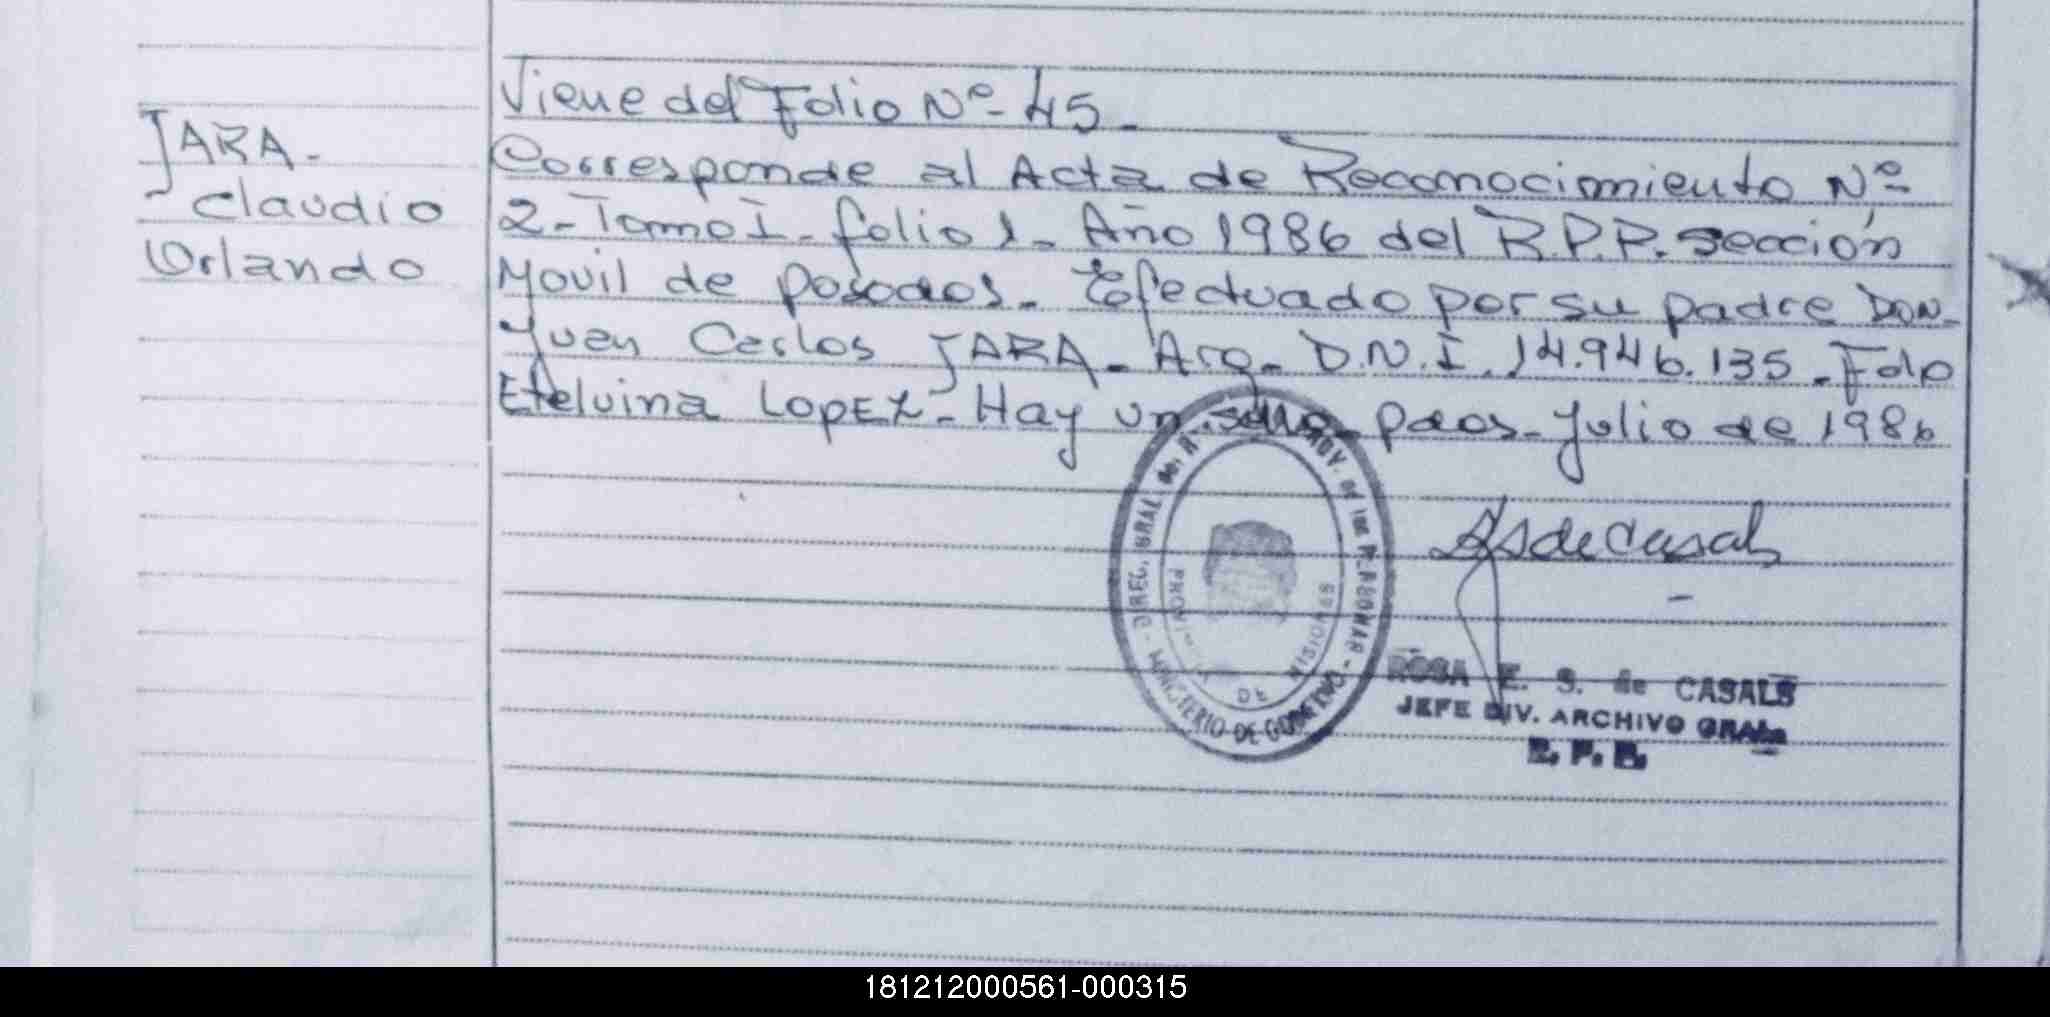 Viene del Folio Nº- 45-
JARA-
Corresponde al Acta de Reconocimiento Nº-
- Claudio
2- Tomo I- folio 1- Año 1986 del R.P.P. sección
Orlando
Movil de posadas- Efectuado por su padre DON-
Juan Carlos JARA- Arg- D.N.I. 14.946.135- Fdo
Etelvina LOPEZ- Hay un sello- pdas- Julio de 1986
DIREC. GRAL de
PROV. de las PERSONAS - MINISTERIO DE GOBIERNO -
DE MISIONES
ROSA E. S. de CASALS
JEFE DIV. ARCHIVO GRAL.
R. P. P.
181212000561-000315